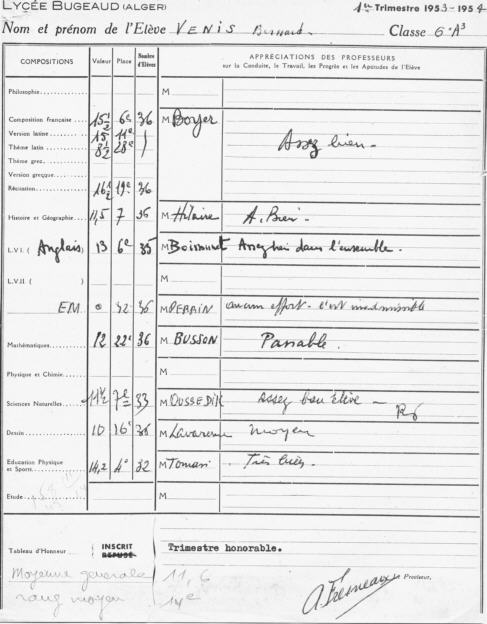 LYCÉE BUGEAUD (ALGER) 1er Trimestre 1953-1954
Nom et prénom de l'Elève VENIS Bernard. Classe 6e A3
COMPOSITIONS Valeur Place Nombre d'Elèves APPRÉCIATIONS DES PROFESSEURS
sur la Conduite, le Travail, les Progrès et les Aptitudes de l'Elève
Philosophie M
Composition française 15½ 6e 36 M. Boyer
Version latine 15 11e Assez bien -
Thème latin 8½ 28e
Thème grec
Version grecque
Récitation 16½ 19e 36
Histoire et Géographie 11,5 7 36 M. Hilaire A. Bien -
L.V.I. (Anglais) 13 6e 35 M. Boissinot Assez bien dans l'ensemble.
L.V.II. ( ) M
EM 0 32 36 M. PERRIN aucun effort - c'est inadmissible
Mathématiques 12 22e 36 M. BUSSON Passable.
Physique et Chimie M
Sciences Naturelles 11½ 7e 33 M. OUSSEDIK assez bon élève -
Dessin 10 16e 36 M. Lavarenne moyen
Education Physique
et Sports 14,2 4e 32 M. Tomasi Très bien.
Etude M
Tableau d'Honneur INSCRIT Trimestre honorable.
REFUSÉ
Moyenne générale 11,6 Le Proviseur,
rang moyen 14e A. Fresneaux